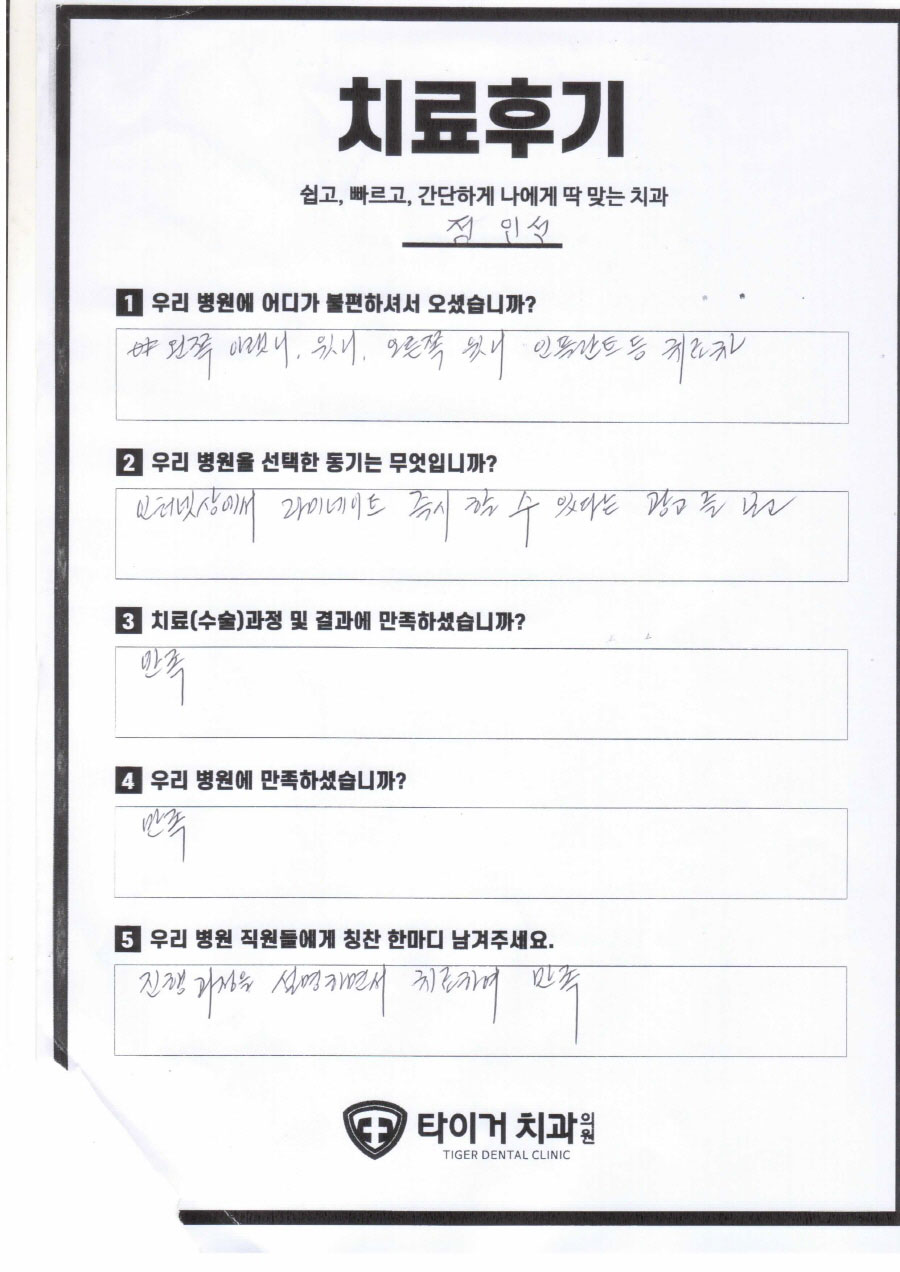 치료후기
쉽고, 빠르고, 간단하게 나에게 딱 맞는 치과
정 인석
1 우리 병원에 어디가 불편하셔서 오셨습니까?
왼쪽 아랫니, 윗니, 오른쪽 윗니 임플란트 등 치료차
2 우리 병원을 선택한 동기는 무엇입니까?
인터넷상에서 라미네이트 즉시 할 수 있다는 광고를 보고
3 치료(수술)과정 및 결과에 만족하셨습니까?
만족
4 우리 병원에 만족하셨습니까?
만족
5 우리 병원 직원들에게 칭찬 한마디 남겨주세요.
진행과정을 설명하면서 치료하여 만족
타이거 치과의원
TIGER DENTAL CLINIC